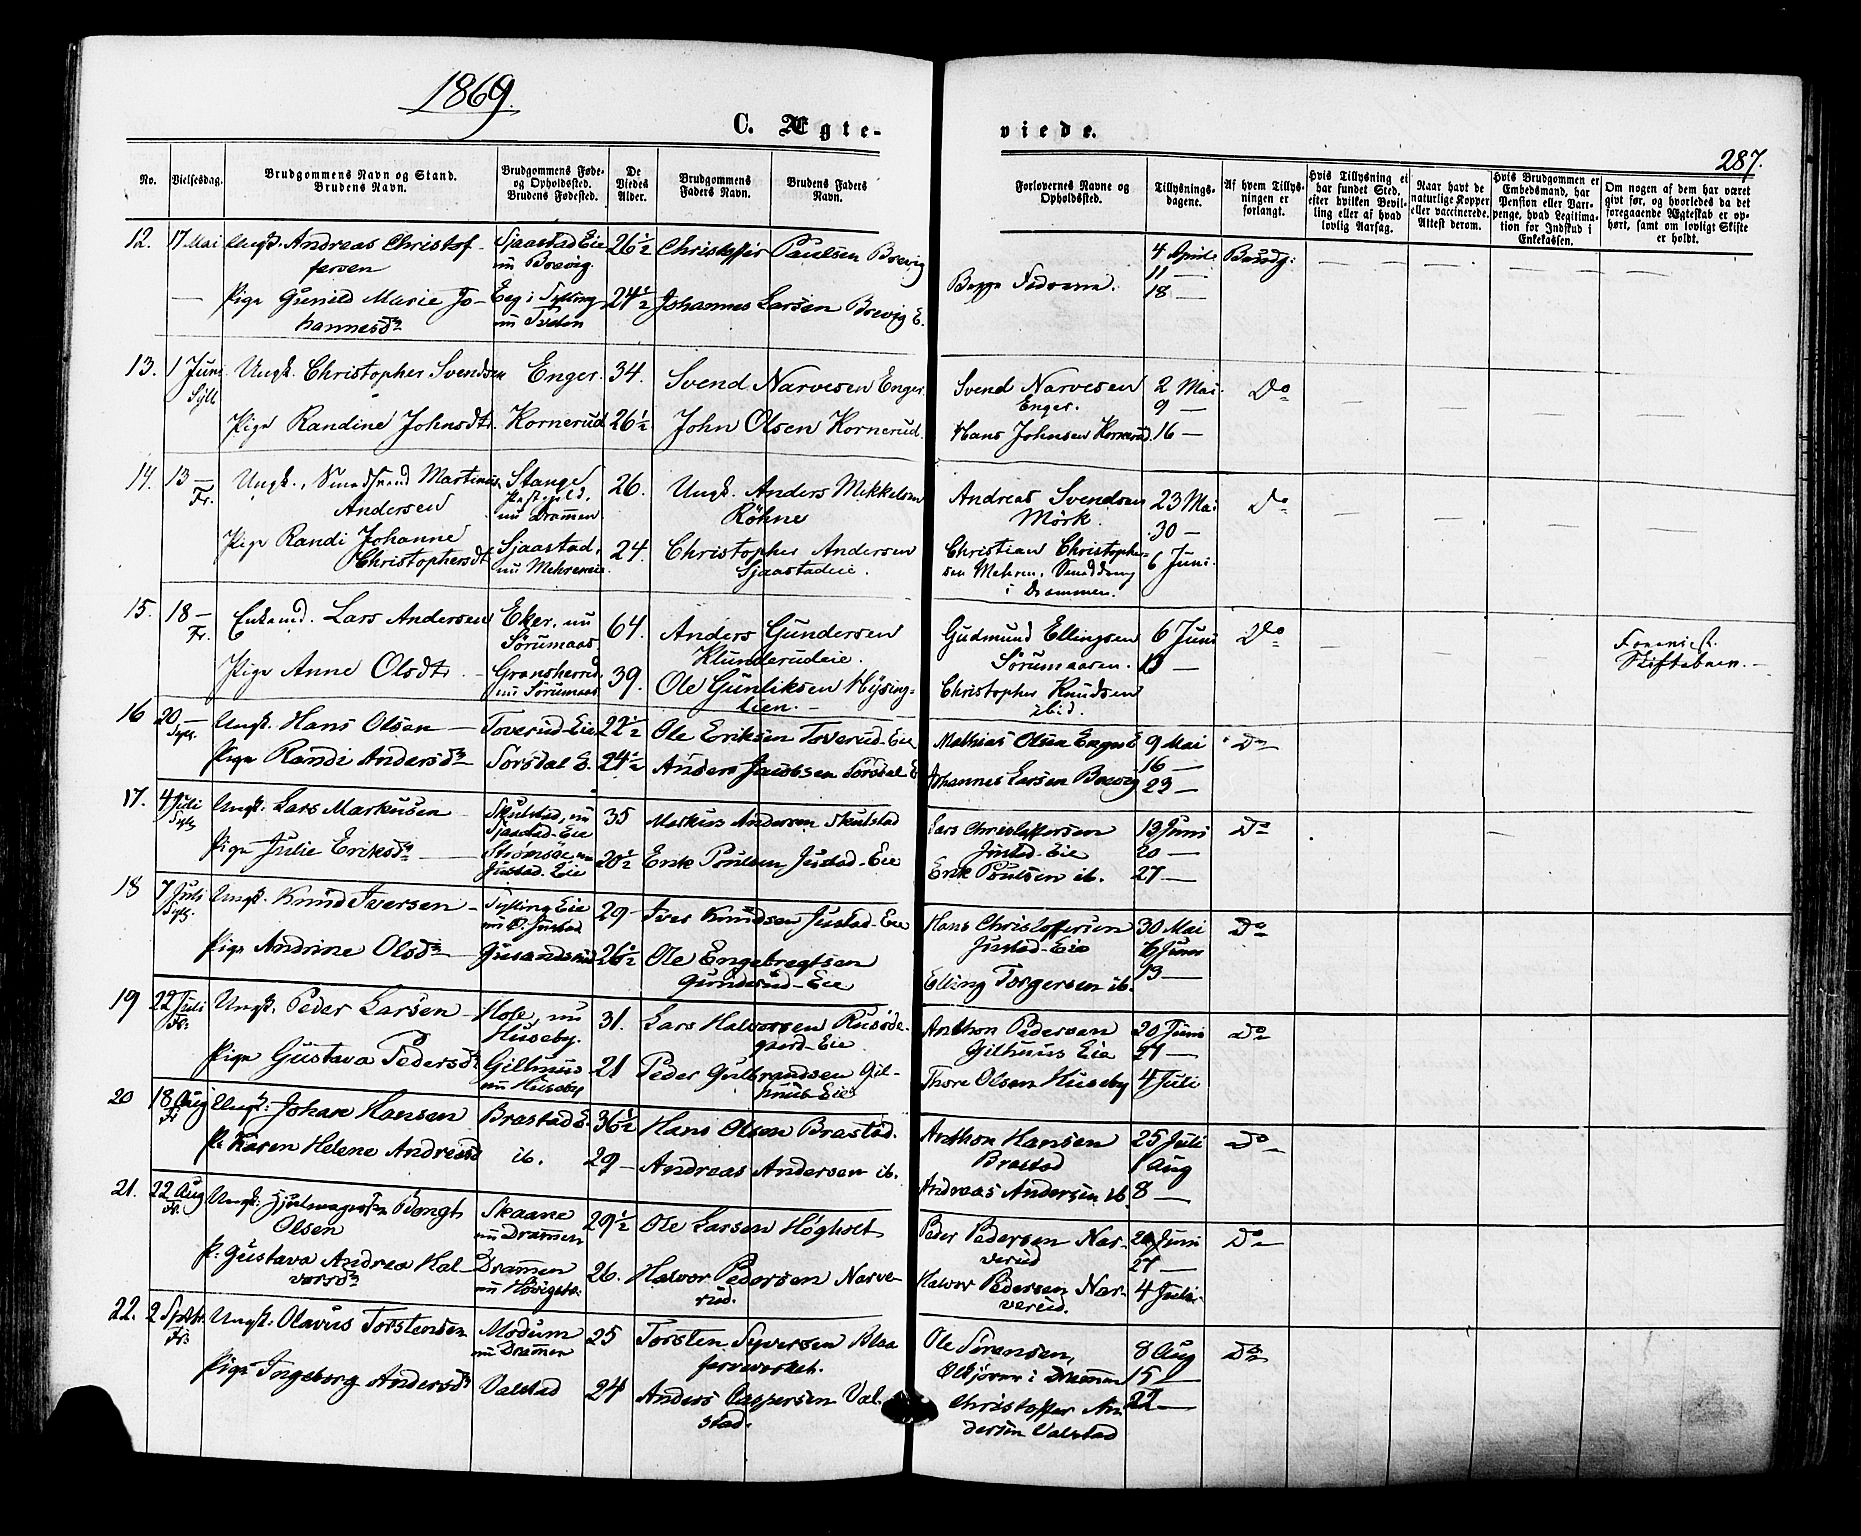 1869.
C. Ægte-
viede.
287.
No.
Vielsesdag.
Brudgommens Navn og Stand.
Brudens Navn.
Brudgommens Føde-
og Opholdssted.
Brudens Fødested.
De
Viedes
Alder.
Brudgommens
Faders Navn.
Brudens Faders
Navn.
Forlovernes Navne og
Opholdssted.
Tillysnings-
dagene.
Af hvem Tillys-
ningen er
forlangt.
Hvis Tillysning ei
har fundet Sted,
efter hvilken Bevil-
ling eller af hvad
lovlig Aarsag.
Naar havt de
naturlige Kopper
eller vaccinerede.
Attest derom.
Hvis Brudgommen er
Embedsmand, har
Pension eller Vart-
penge, hvad Legitima-
tion for Indskud i
Enkekassen.
Om nogen af dem har været
givt før, og hvorledes da det
foregaaende Ægteskab er op-
hørt, samt om lovligt Skifte
er holdt.
12. 17 Mai Ungk. Andreas Christof-
fersen
Sjaastad Eie
nu Brevig.
26½ Christoffer Paulsen Brevig
— Pige Gunild Marie Jo-
hannesdr
Eeg i Sylling
nu Tveten
24½ Johannes Larsen Brevig E.
Begge Fædrene.
4 April
11 —
18 —
Brudg:
13. 1 Juni
Syll
Ungk. Christopher Svendsen Enger. 34. Svend Narvesen Enger.
Pige Randine Johnsdtr. Kornerud 26½ John Olsen Kornerud.
Svend Narvesen
Enger.
Hans Johnsen Kornerud.
2 Mai
9 —
16 —
Do
14. 13 —
Fr.
Ungk., Martinius
Andersen
Stange
Præstegjeld,
nu Drammen.
26. Ungk. Anders Mikkelsen
Röhne
Pige Randi Johanne
Christophersdt.
Sjaastad,
nu Mehreneie
24. Christopher Andersen
Sjaastadeie.
Andreas Svendsen
Mörk.
Christian Christopher-
sen Mehren,
i Drammen.
23 Mai
30 —
6 Juni.
Do
15. 18 —
Fr.
Enkemd. Lars Andersen
Eker, nu
Sørumaas
64. Anders Gundersen
Klunderudeie.
Pige Anne Olsdtr.
Gransherred
nu Sørumaas
39. Ole Gunliksen Hysing-
lien.
Gudmund Ellingsen
Sørumaasen.
Christopher Knudsen
ibid.
6 Juni
13 —
Do
Skiftebrev.
16 20 —
Syll.
Ungk. Hans Olsen Toverud-Eie 22½ Ole Eriksen Toverud-Eie
Pige Randi Andersdr Sørsdal E. 24½ Anders Jacobsen Sørsdal E
Mathias Olsen Enger E
Johannes Larsen Brevig
9 Mai
16 —
23 —
Do
17. 4 Juli
Syll
Ungk. Lars Markusen
Skulstad, nu
Sjaastad-Eie
35 Markus Andersen Skulstad
Pige Julie Eriksdr
Strømsøe, nu
Justad-Eie
20½ Erik Poulsen Justad-Eie
Lars Christoffersen
Justad-Eie
Erik Poulsen ib.
13 Juni
20 —
27 —
Do
18 7 Juli
Syll.
Ungk. Knud Iversen
Sylling Eie
nu Justad
29 - Iver Knudsen Justad-Eie
Pige Andrine Olsdr 26½ Ole Engebregtsen
Gunderud-Eie
Hans Christoffersen
Justad-Eie
Elling Torgersen ib.
30 Mai
6 Juni
13 —
Do
19 22 Juli
Fr.
Ungk. Peder Larsen
Hole, nu
Huseby.
31. Lars Halvorsen Rusøde-
gaard-Eie
Pige Gustava Pedersdr
Gilhuus
nu Huseby
21 Peder Gulbrandsen Gil-
huus-Eie
Anthon Pedersen
Gilhuus Eie
Thore Olsen Huseby
20 Juni
27 —
4 Juli
Do
20 18 Aug
Fr
Ungk: Johan Hansen Brastad E. 36½ Hans Olsen Brastad.
P: Karen Helene Andreasd ib. 29 — Andreas Andersen ib.
Anthon Hansen
Brastad
Andreas Andersen ib
25 Juli
1 Aug
8 —
Do
21. 22 Aug
Fr.
Ungk: Hjulmagersv. Bengt
Olsen
Skaane
nu Drammen
29½ Ole Larsen Høgholt
P: Gustava Andrea Hal-
vorsdr
Drammen
26. Halvor Pedersen Narve-
rud.
Peder Pedersen Nar-
verud
Halvor Pedersen Nar-
verud.
20 Juni
27 —
4 Juli
Do
22. 2 Septbr.
Fr.
Ungk. Olavus Torstensen
Modum
nu Drammen
25 Torsten Syversen Blaa
farveverket.
Pige Ingeborg Andersdr Valstad 24 Anders Caspersen Val-
stad.
Ole Sørensen,
i Drammen
Christoffer An
dersen Valstad
8 Aug
15 —
22 —
Do